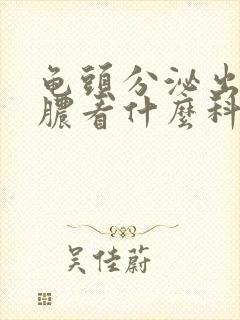 龟頭分泌出
膿看什麼科
吴佳蔚